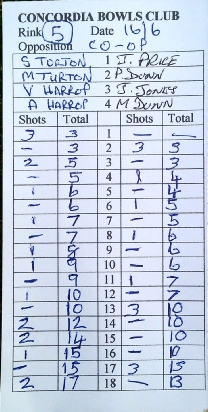 CONCORDIA BOWLS CLUB
Rink 5 Date 16/6
Opposition CO-OP
S TORTON 1 J. PRICE
M TURTON 2 P DUNN
V HARROP 3 J. JONES
A HARROP 4 M DUNN
Shots Total Shots Total
3 3 1 — —
— 3 2 3 3
2 5 3 — 3
— 5 4 1 4
1 6 5 — 4
— 6 6 1 5
1 7 7 — 5
— 7 8 1 6
1 8 9 — 6
1 9 10 — 6
— 9 11 1 7
1 10 12 — 7
— 10 13 3 10
2 12 14 — 10
2 14 15 — 10
1 15 16 — 10
— 15 17 3 13
2 17 18 — 13